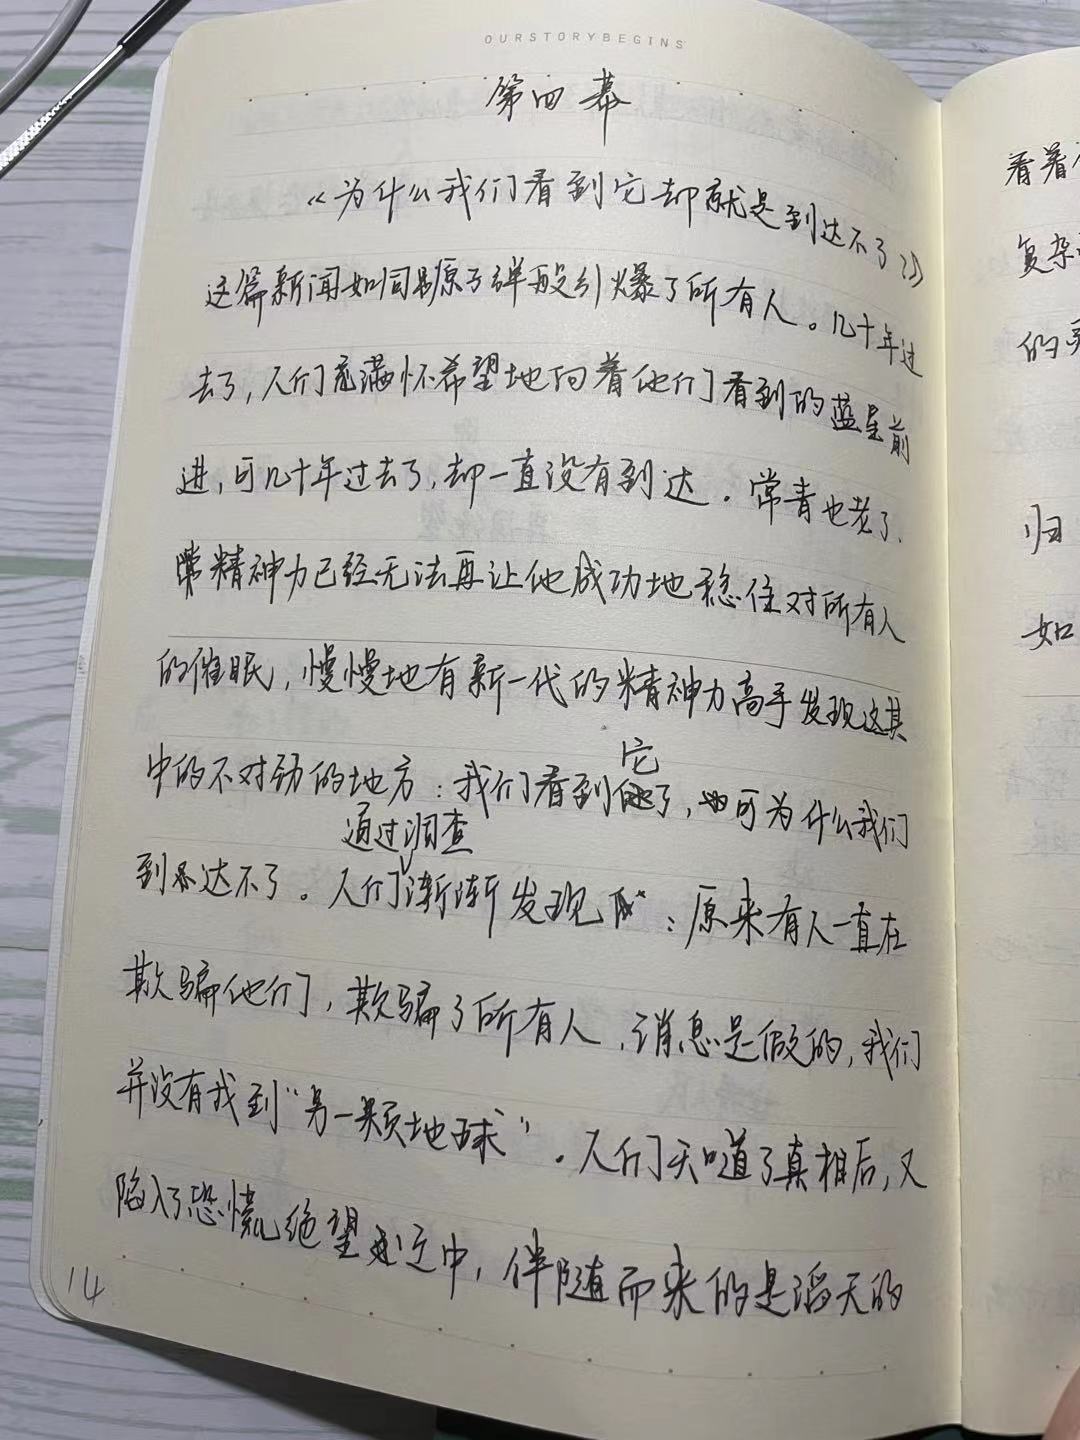 OURSTORYBEGINS
第四幕
《为什么我们看到它却就是到达不了??》
这篇新闻如同原子弹般引爆了所有人。几十年过
去了,人们充满怀希望地向着他们看到的蓝星前
进,可几十年过去了,却一直没有到达。常青也老了,
精神力已经无法再让他成功地稳住对所有人
的催眠,慢慢地有新一代的精神力高手发现这其
中的不对劲的地方:我们看到它了,可为什么我们
通过调查
到达不了。人们渐渐发现:原来有人一直在
欺骗他们,欺骗了所有人,消息是假的,我们
并没有找到“另一颗地球”。人们知道了真相后,又
陷入了恐慌绝望之中,伴随而来的是滔天的
14
看着
复杂
的
归
如